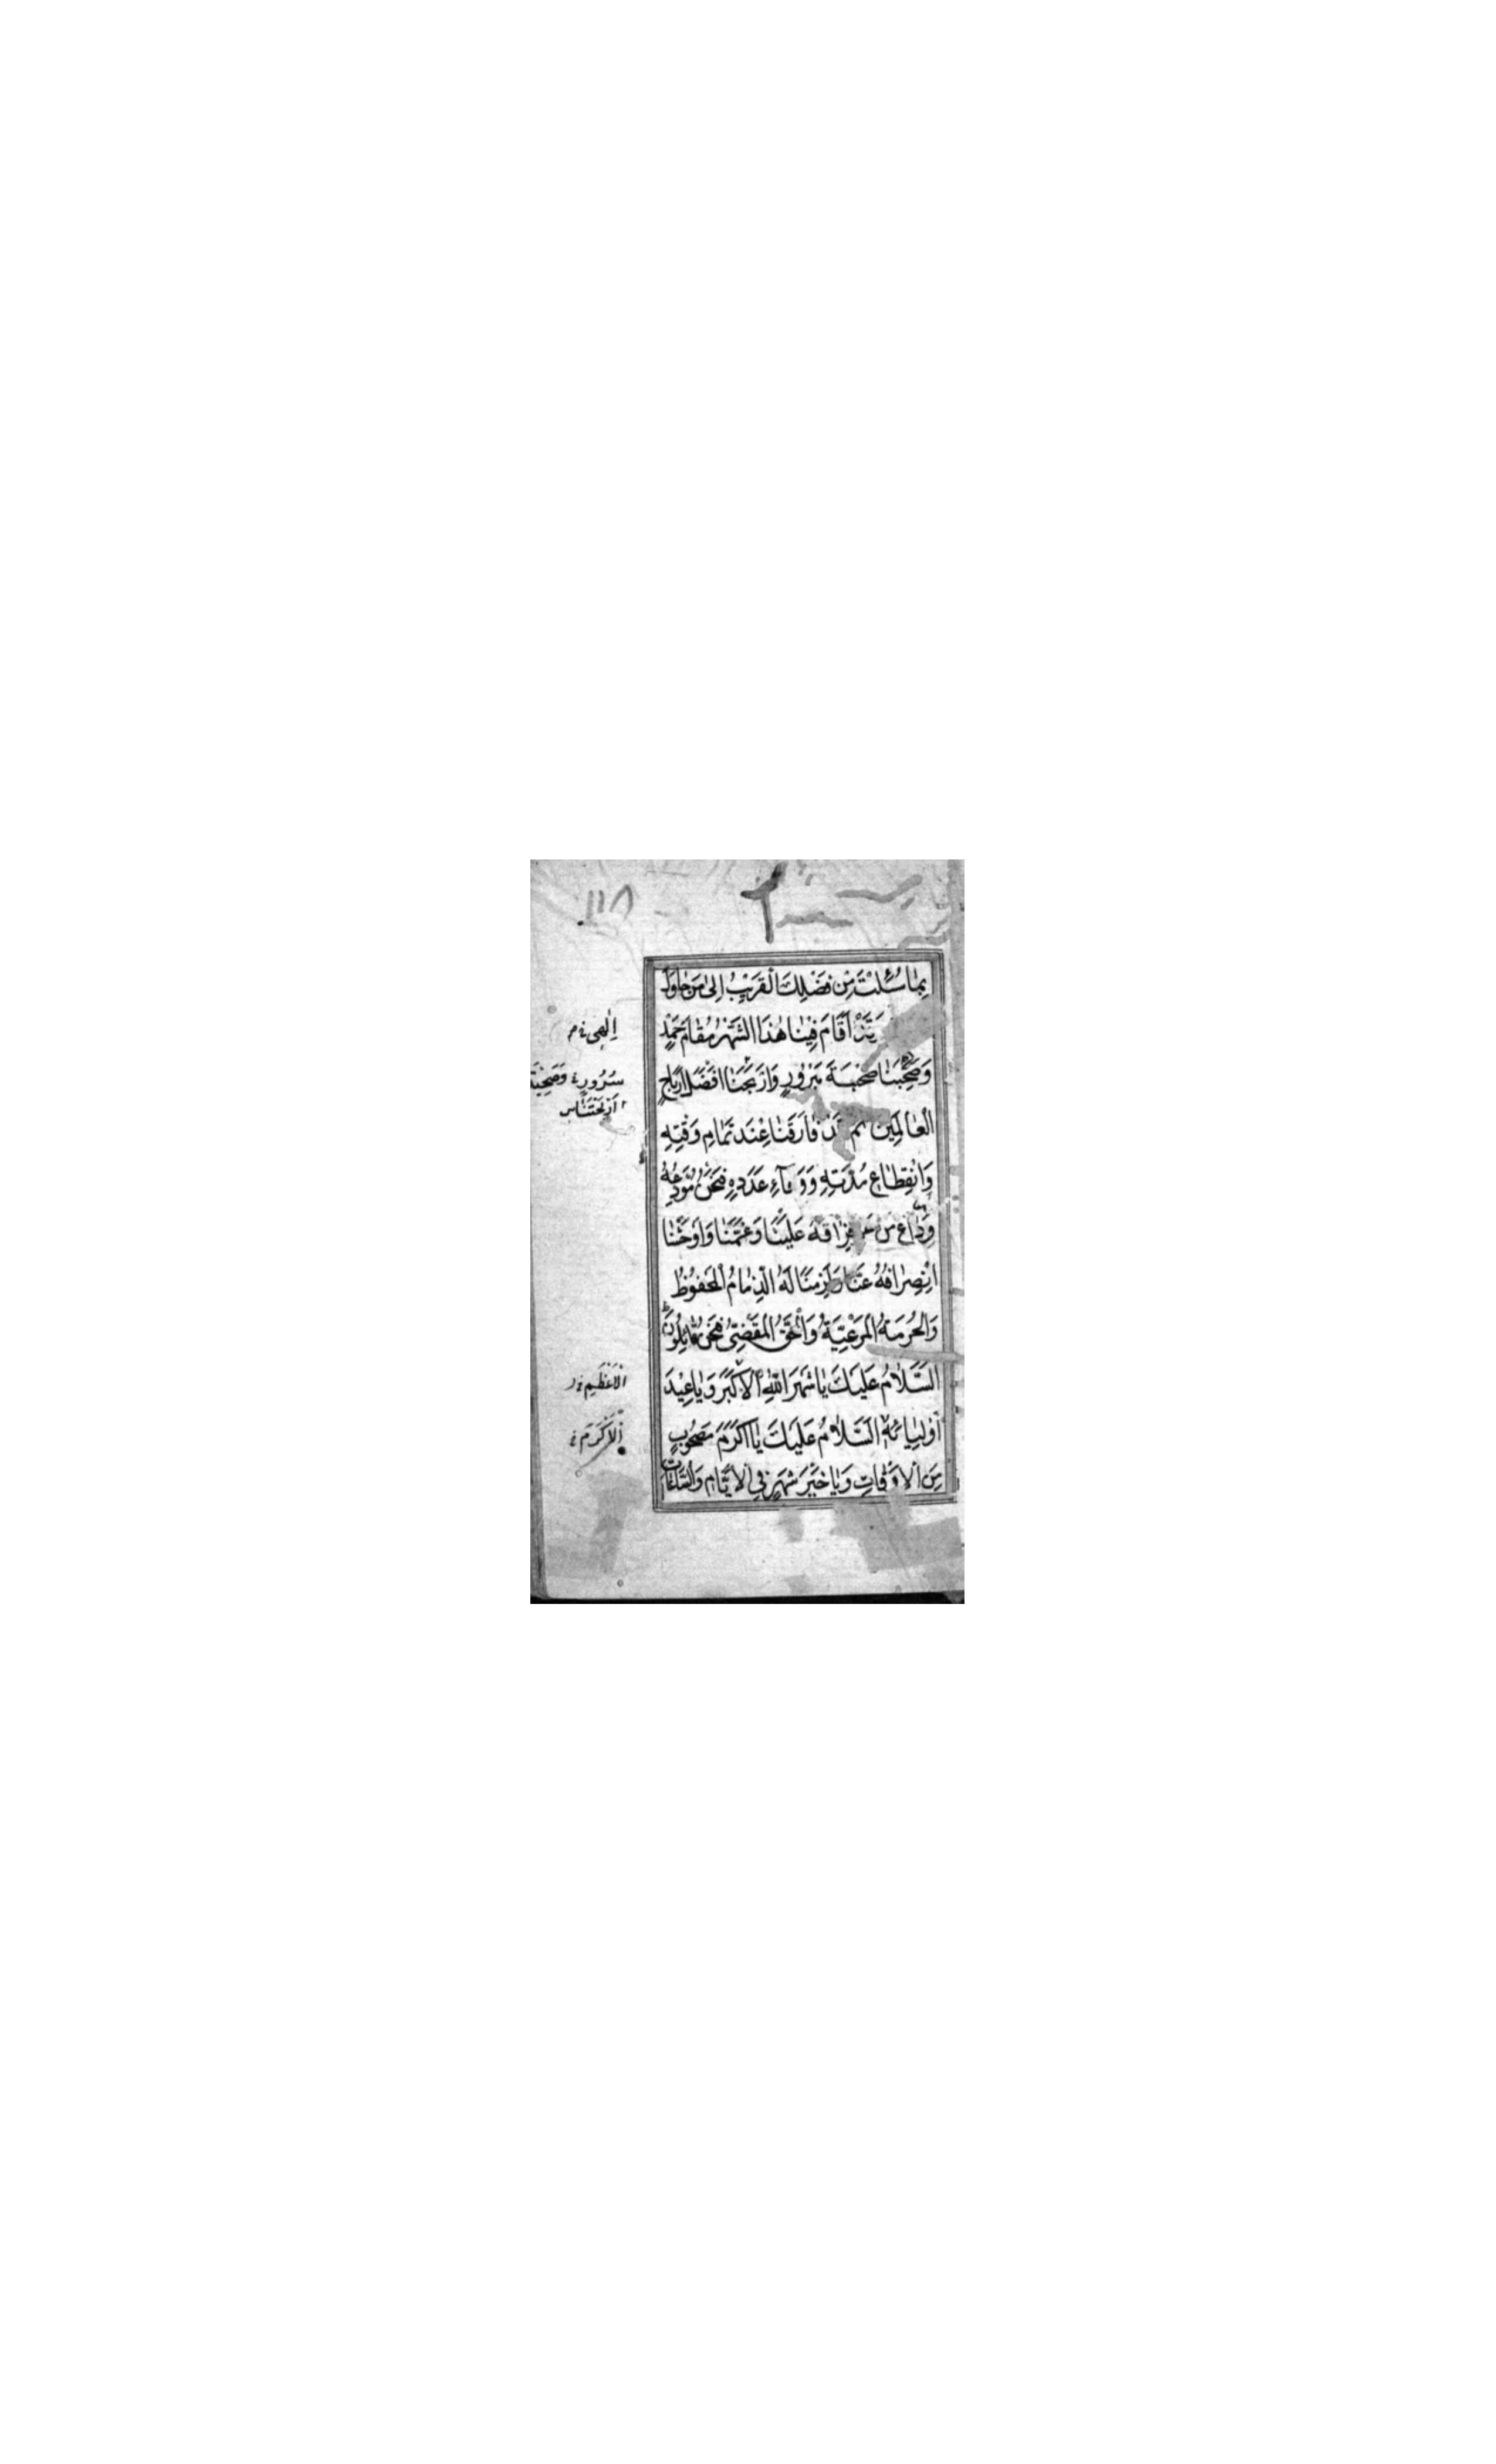 ١١٨
بِمَا سُئِلْتَ مِنْ فَضْلِكَ الْقَرِيْبُ اِلىٰ مَنْ حَاوَلَ
اَقَامَ فِيْنَا هٰذَا الشَّهْرُ مُقَامَ حَمْدٍ
وَصَحِبَنَا صُحْبَةَ مَبْرُوْرٍ وَاَرْبَحَنَا اَفْضَلَ اَرْبَاحِ
الْعَالَمِيْنَ فَارَقَنَا عِنْدَ تَمَامِ وَقْتِهِ
وَانْقِطَاعِ مُدَّتِهِ وَوَفَآءِ عَدَدِهِ فَنَحْنُ مُوَدِّعُوْهُ
وِدَاعَ مَنْ فِرَاقُهُ عَلَيْنَا وَغَمَّنَا وَاَوْحَشَنَا
انْصِرَافُهُ عَنَّا وَلَزِمَنَا لَهُ الذِّمَامُ الْمَحْفُوْظُ
وَالْحُرْمَةُ الْمَرْعِيَّةُ وَالْحَقُّ الْمَقْضِيُّ فَنَحْنُ قَائِلُوْنَ
اَلسَّلَامُ عَلَيْكَ يَا شَهْرَ اللّٰهِ الْاَكْبَرَ وَيَا عِيْدَ
اَوْلِيَائِهِ اَلسَّلَامُ عَلَيْكَ يَا اَكْرَمَ مَصْحُوْبٍ
مِنَ الْاَوْقَاتِ وَيَا خَيْرَ شَهْرٍ فِي الْاَيَّامِ وَالسَّاعَاتِ
اِلٰهِى
سُرُوْرٍ وَصَحِبَنَا
الْاَعْظَمِ
الْاَكْرَمَ